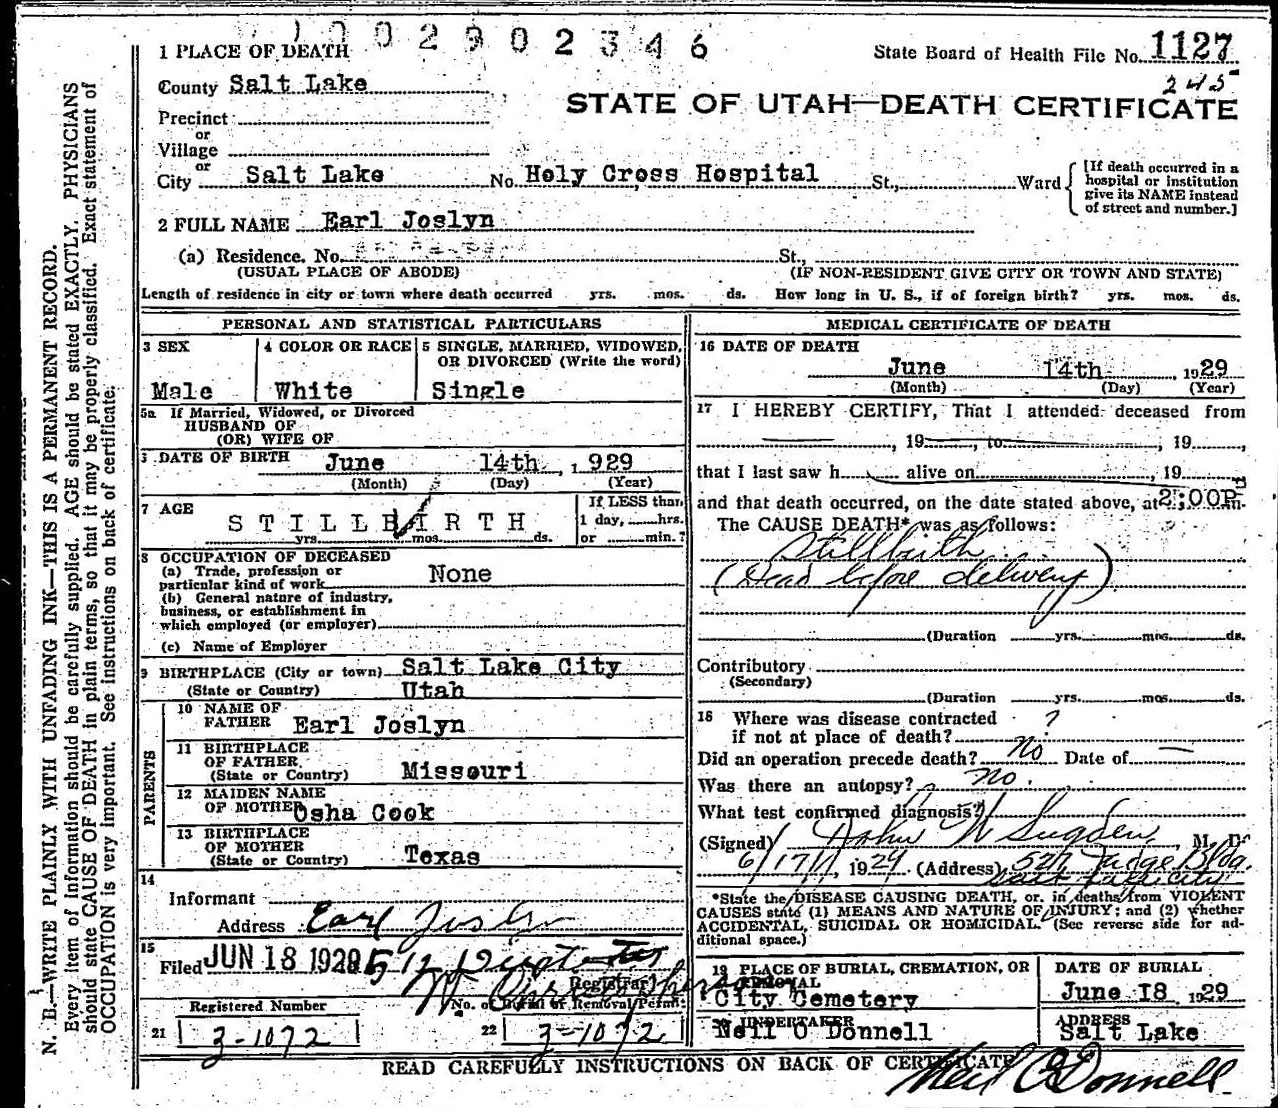 1002902346
State Board of Health File No. 1127
245
1 PLACE OF DEATH
County Salt Lake
STATE OF UTAH—DEATH CERTIFICATE
Precinct
or
Village
or
City Salt Lake No. Holy Cross Hospital St., Ward
[If death occurred in a
hospital or institution
give its NAME instead
of street and number.]
2 FULL NAME Earl Joslyn
(a) Residence. No. St.,
(USUAL PLACE OF ABODE) (IF NON-RESIDENT GIVE CITY OR TOWN AND STATE)
Length of residence in city or town where death occurred yrs. mos. ds. How long in U. S., if of foreign birth? yrs. mos. ds.
PERSONAL AND STATISTICAL PARTICULARS
3 SEX
Male
4 COLOR OR RACE
White
5 SINGLE, MARRIED, WIDOWED,
OR DIVORCED (Write the word)
Single
5a If Married, Widowed, or Divorced
HUSBAND OF
(OR) WIFE OF
DATE OF BIRTH June 14th, 1929
(Month) (Day) (Year)
7 AGE
STILLBIRTH
yrs. mos. ds.
If LESS than
1 day, hrs.
or min.?
8 OCCUPATION OF DECEASED
(a) Trade, profession or
particular kind of work None
(b) General nature of industry,
business, or establishment in
which employed (or employer)
(c) Name of Employer
9 BIRTHPLACE (City or town) Salt Lake City
(State or Country) Utah
PARENTS
10 NAME OF
FATHER Earl Joslyn
11 BIRTHPLACE
OF FATHER
(State or Country) Missouri
12 MAIDEN NAME
OF MOTHER Osha Cook
13 BIRTHPLACE
OF MOTHER
(State or Country) Texas
14
Informant
Address Earl Joslyn
15
Filed JUN 18 1929
Registrar
Registered Number
No. of Burial or Removal Permit
21 3-1072
22 3-1072
MEDICAL CERTIFICATE OF DEATH
16 DATE OF DEATH
June 14th, 1929
(Month) (Day) (Year)
17 I HEREBY CERTIFY, That I attended deceased from
, 19 , to , 19 ,
that I last saw h alive on , 19
and that death occurred, on the date stated above, at 2:00P m.
The CAUSE DEATH* was as follows:
Stillbirth
(Dead before delivery)
(Duration yrs. mos. ds.
Contributory
(Secondary)
(Duration yrs. mos. ds.
18 Where was disease contracted
if not at place of death? ?
Did an operation precede death? No Date of —
Was there an autopsy? No.
What test confirmed diagnosis?
(Signed) John W Sugden, M. D.
6/17/, 1929 (Address) 527 Judge Bldg.
Salt Lake City
*State the DISEASE CAUSING DEATH, or, in deaths from VIOLENT
CAUSES state (1) MEANS AND NATURE OF INJURY; and (2) whether
ACCIDENTAL, SUICIDAL OR HOMICIDAL. (See reverse side for ad-
ditional space.)
19 PLACE OF BURIAL, CREMATION, OR
REMOVAL
City Cemetery
DATE OF BURIAL
June 18, 1929
20 UNDERTAKER
Neil O Donnell
ADDRESS
Salt Lake
READ CAREFULLY INSTRUCTIONS ON BACK OF CERTIFICATE
Neil O'Donnell
N. B.—WRITE PLAINLY WITH UNFADING INK—THIS IS A PERMANENT RECORD.
Every item of information should be carefully supplied. AGE should be stated EXACTLY. PHYSICIANS
should state CAUSE OF DEATH in plain terms, so that it may be properly classified. Exact statement of
OCCUPATION is very important. See instructions on back of certificate.